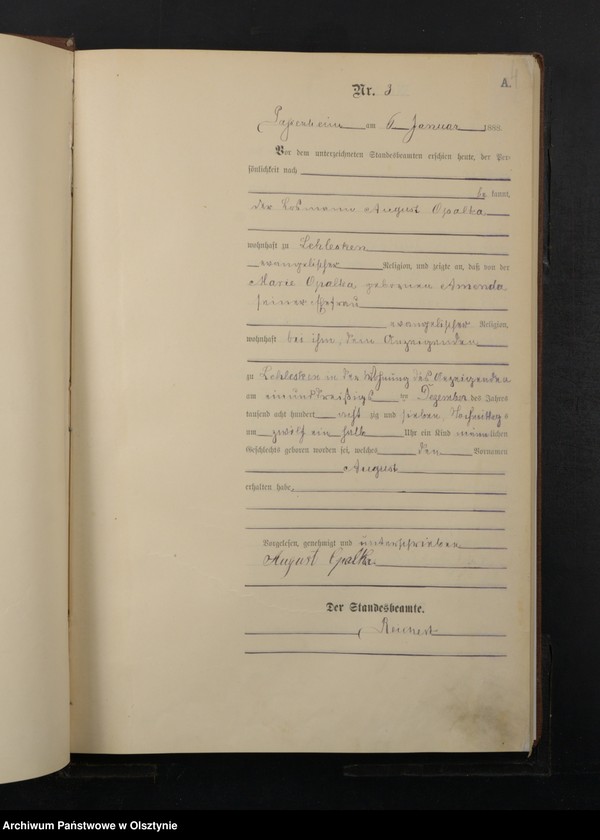 A.
Nr. 3
Passenheim am 6 Januar 1888.
Vor dem unterzeichneten Standesbeamten erschien heute, der Per-
sönlichkeit nach
be kannt,
der Losmann August Opalka
wohnhaft zu Lehlesken
evangelischer Religion, und zeigte an, daß von der
Marie Opalka geborenen Amenda
seiner Ehefrau
evangelischer Religion,
wohnhaft bei ihm, dem Anzeigenden
zu Lehlesken in der Wohnung des Anzeigenden
am einunddreißigs ten Dezember des Jahres
tausend acht hundert acht zig und sieben, Nachmittags
um zwölf ein halb Uhr ein Kind männ lichen
Geschlechts geboren worden sei, welches den Vornamen
August
erhalten habe.
Vorgelesen, genehmigt und unterschrieben
August Opalka
Der Standesbeamte.
Archiwum Państwowe w Olsztynie